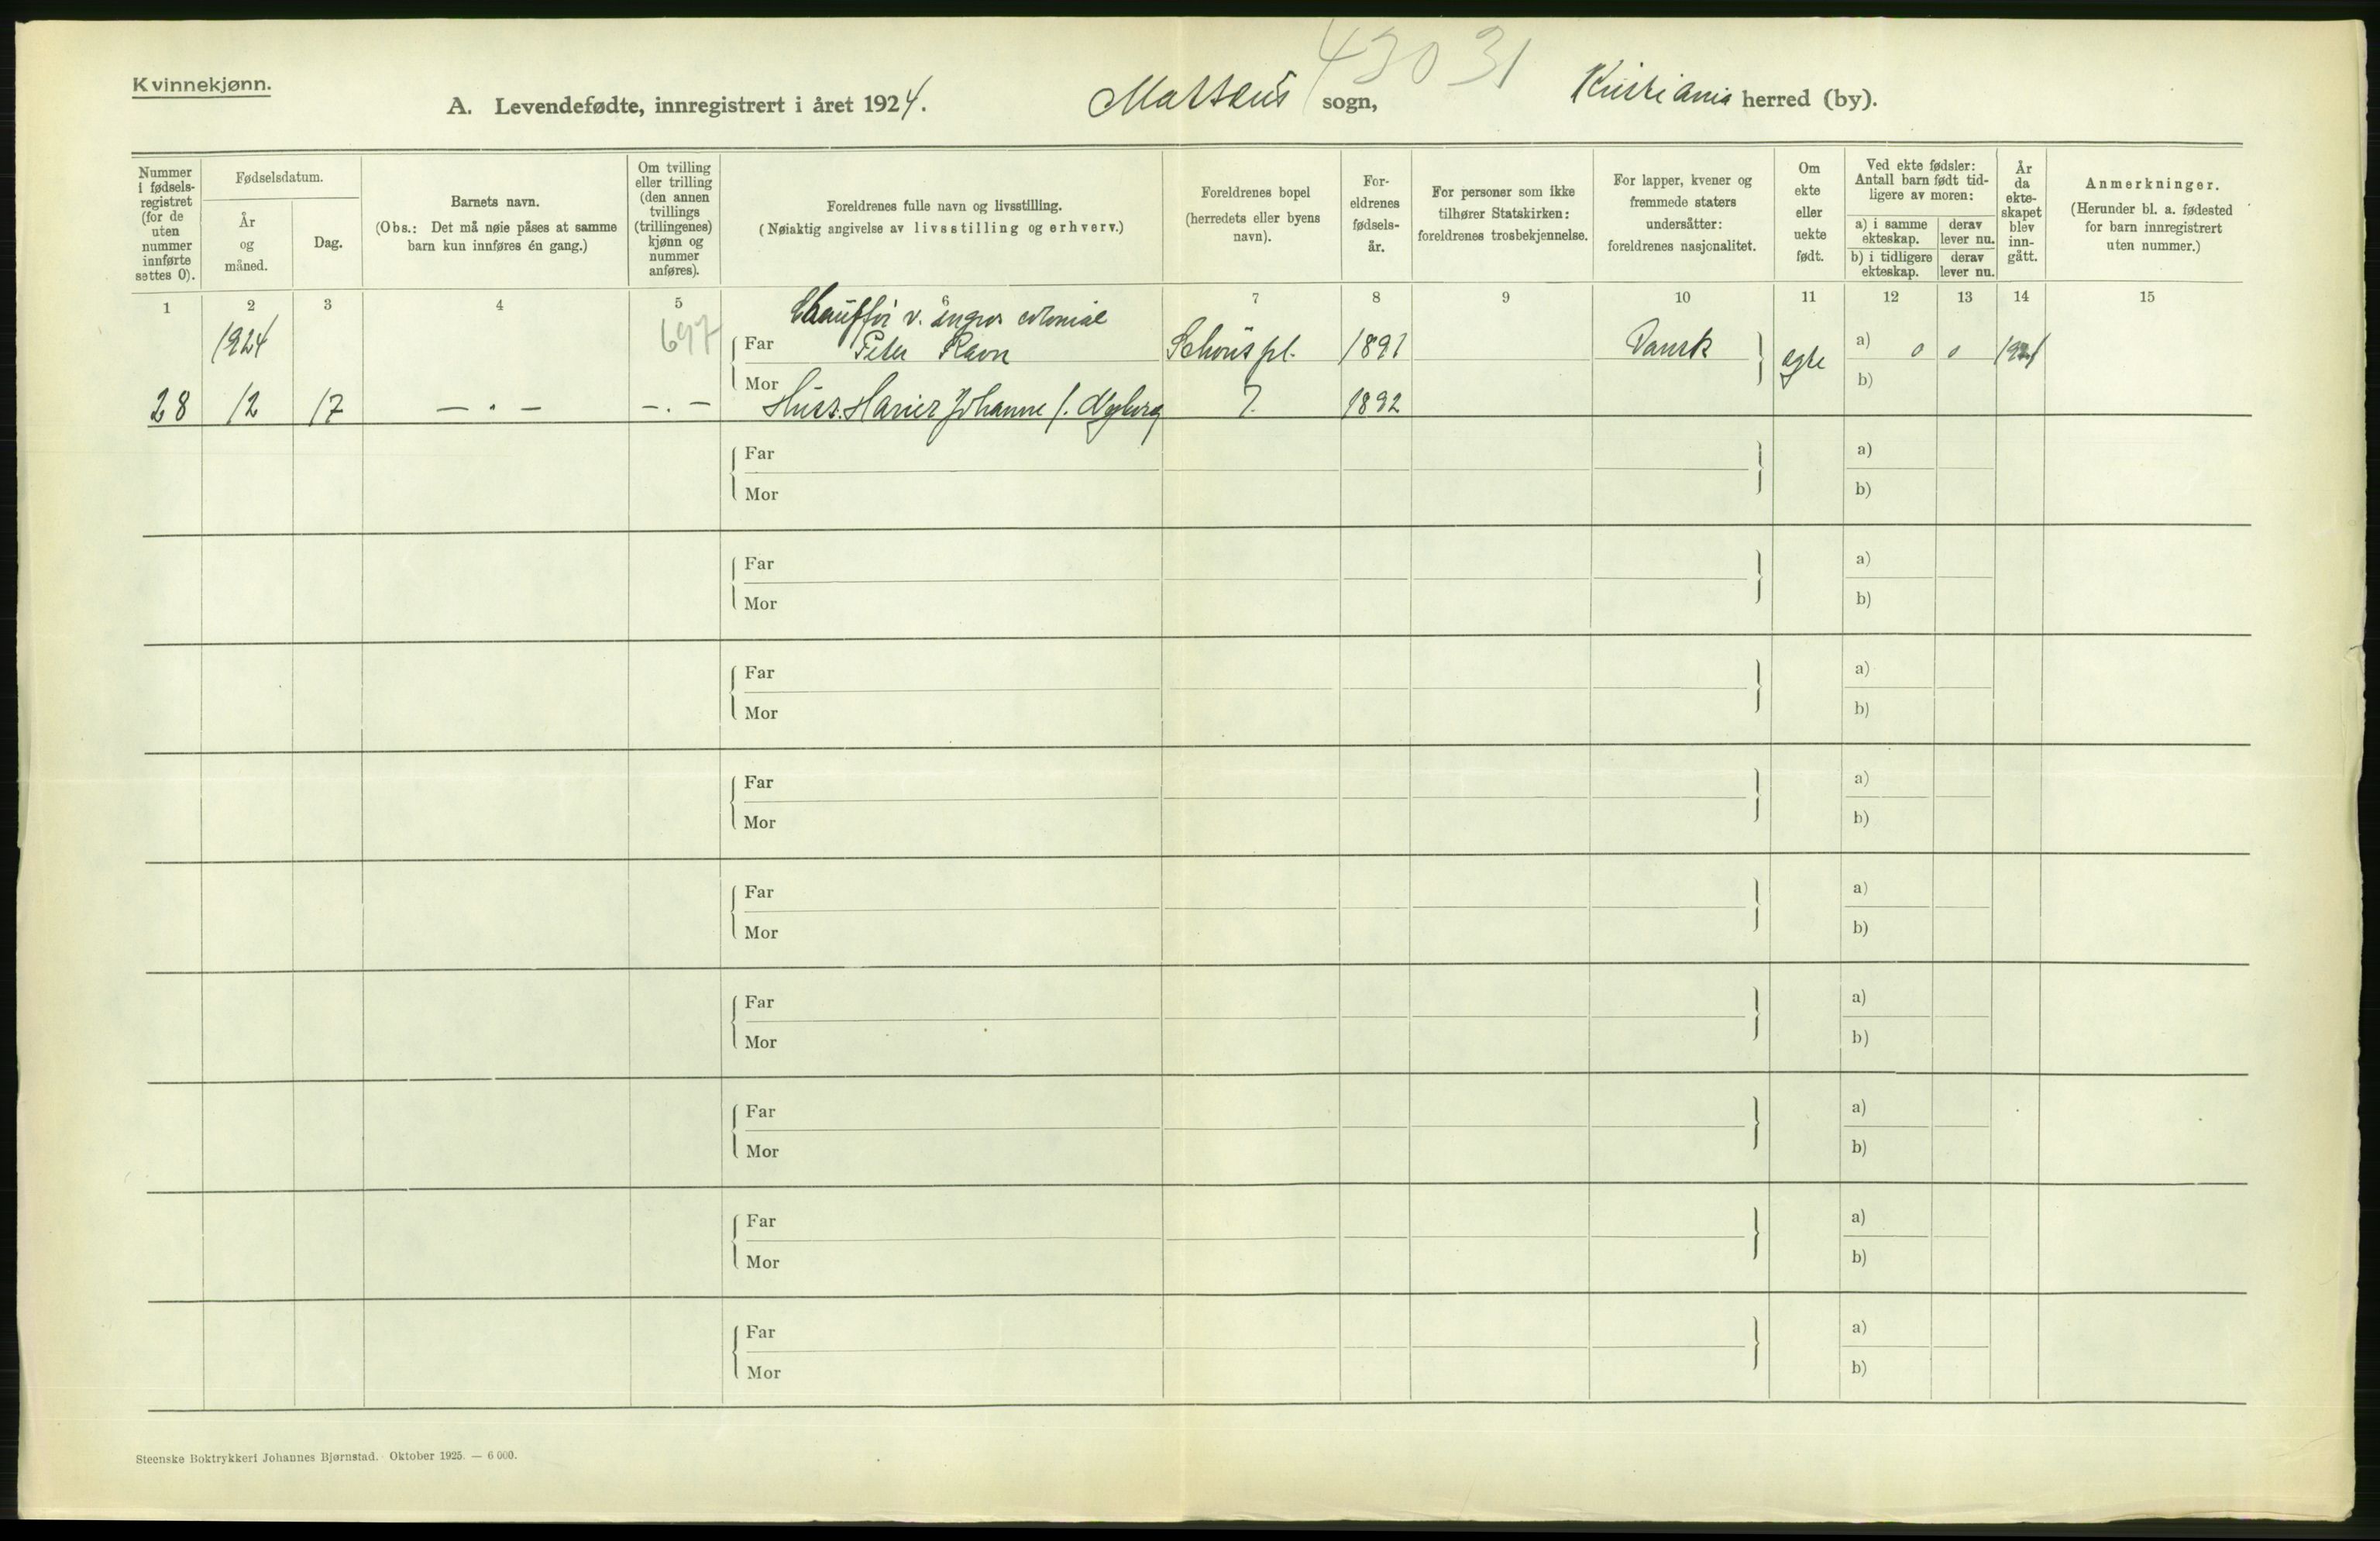 43031
Kvinnekjønn.
A. Levendefødte, innregistrert i året 1924. Matteus sogn, Kristiania herred (by).
Nummer i fødsels-registret (for de uten nummer innførte settes 0).
Fødselsdatum.
År og måned.
Dag.
Barnets navn.
(Obs.: Det må nøie påses at samme barn kun innføres én gang.)
Om tvilling eller trilling (den annen tvillings (trillingenes) kjønn og nummer anføres).
Foreldrenes fulle navn og livsstilling.
(Nøiaktig angivelse av livsstilling og erhverv.)
Foreldrenes bopel (herredets eller byens navn).
For-eldrenes fødsels-år.
For personer som ikke tilhører Statskirken: foreldrenes trosbekjennelse.
For lapper, kvener og fremmede staters undersåtter: foreldrenes nasjonalitet.
Om ekte eller uekte født.
Ved ekte fødsler: Antall barn født tid-ligere av moren:
a) i samme ekteskap.
derav lever nu.
b) i tidligere ekteskap.
derav lever nu.
År da ekte-skapet blev inn-gått.
Anmerkninger.
(Herunder bl. a. fødested for barn innregistrert uten nummer.)
1 2 3 4 5 6 7 8 9 10 11 12 13 14 15
Chauffør v. engros colonial
1924 697 Far Peter Ravn Schous pl. 1891 Dansk egte a) 0 0 1921
28 12 17 — . — — . — Mor Johanne f. Nyborg 7. 1892 b)
Far a)
Mor b)
Far a)
Mor b)
Far a)
Mor b)
Far a)
Mor b)
Far a)
Mor b)
Far a)
Mor b)
Far a)
Mor b)
Far a)
Mor b)
Far a)
Mor b)
Steenske Boktrykkeri Johannes Bjørnstad. Oktober 1925. — 6 000.